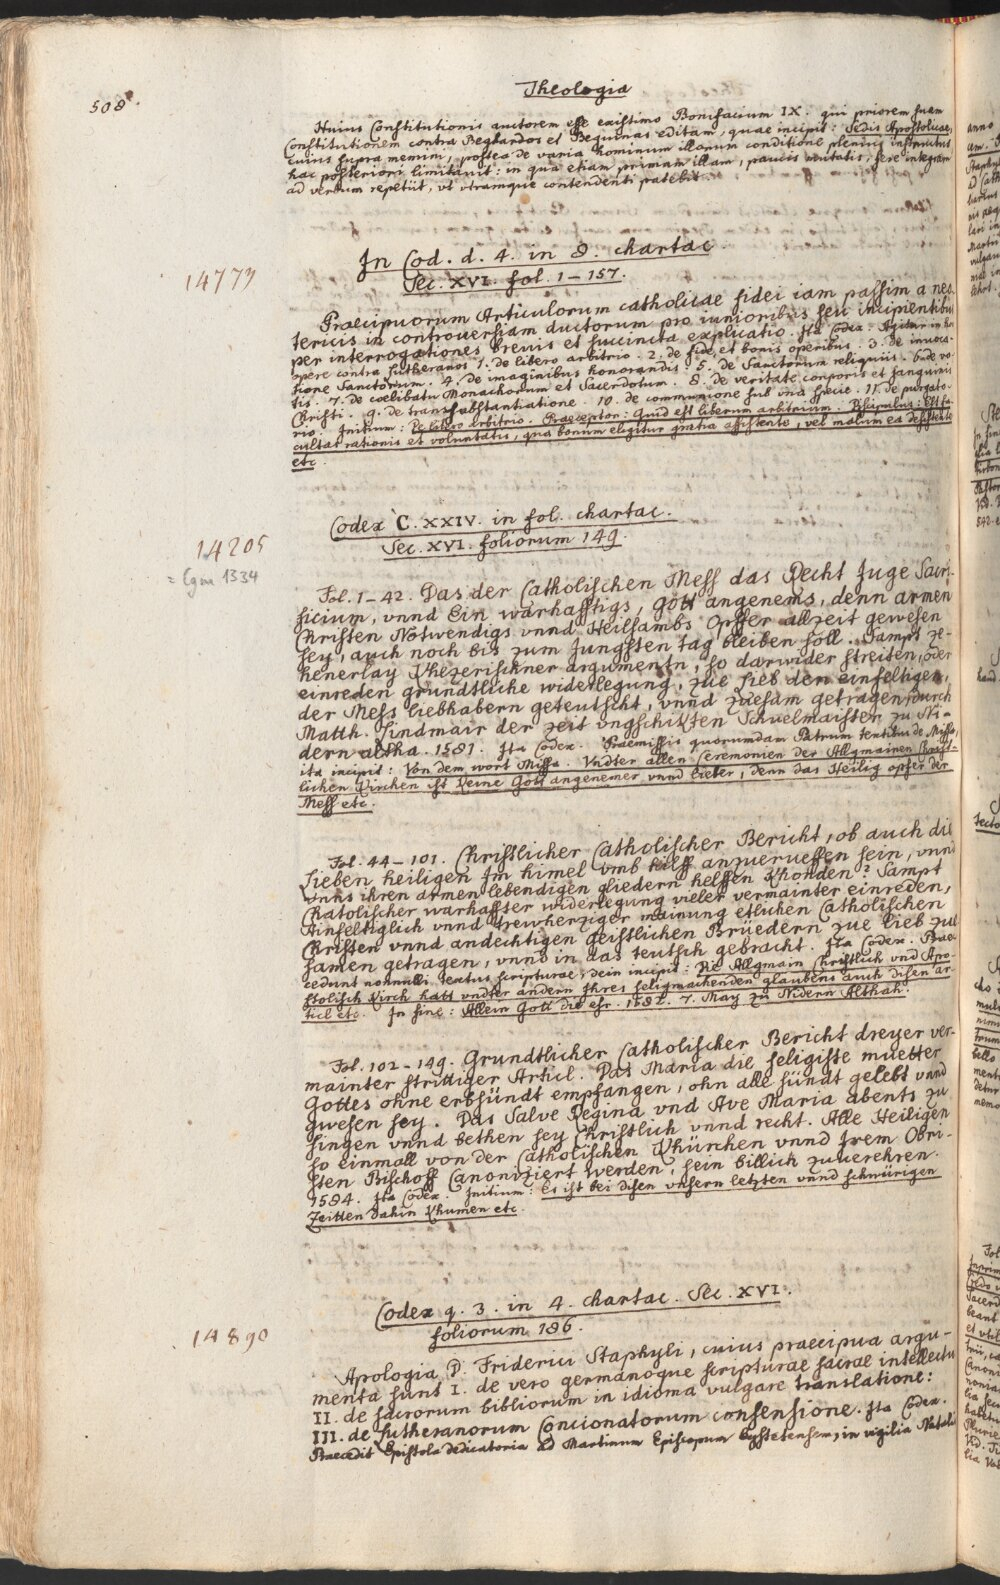 508.
Theologia
Huius Constitutionis auctorem esse existimo Bonifacium IX. qui priorem suam
Constitutionem contra Beghardos et Beguinas editam, quae incipit: Sedis Apostolicae,
cuius supra memini, postea de varia hominum illorum conditione plenius instructus
hac posteriori limitavit: in qua etiam primam illam, paucis mutatis, fere integram
ad verbum repetiit, ut utramque contendenti patebit.
In Cod. d. 4. in 8. chartac.
Sec. XVI. fol. 1–157.
14773
Praecipuorum Articulorum catholicae fidei iam passim a neo-
tericis in controversiam ductorum pro iunioribus seu incipientibus
per interrogationes brevis et succincta explicatio. Ita Codex. Agitur in hoc
opere contra Lutheranos 1. de libero arbitrio. 2. de fide et bonis operibus. 3. de invoca-
tione Sanctorum. 4. de imaginibus honorandis. 5. de Sanctorum reliquiis. 6. de vo-
tis. 7. de coelibatu Monachorum et Sacerdotum. 8. de veritate corporis et sanguinis
Christi. 9. de transsubstantiatione. 10. de communione sub una specie. 11. de purgato-
rio. Initium: De libero Arbitrio. Praeceptor: Quid est liberum arbitrium. Discipulus: Est fa-
cultas rationis et voluntatis, qua bonum eligitur gratia assistente, vel malum ea desistente
etc.
Codex C. XXIV. in fol. chartac.
Sec. XVI. foliorum 149.
14205
= Cgm 1334
Fol. 1–42. Das der Catholischen Mess das Recht Juge Sacri-
ficium, vnnd Ein warhafftigs, Gott angenems, denn armen
Christen Notwendigs vnnd Heilsambs Opffer allzeit gewesen
sey, auch noch bis zum Jungsten tag bleiben soll. Sampt ze-
henerlay Khezerischner argumentn, so darwider streiten, oder
einreden grundtliche widerlegung, zue Lieb den einfeltigen,
der Mess liebhabern geteutscht, vnnd zuesam getragen durch
Matth. Lindmair der zeit vngschikten Schuelmaister zu Ni-
dern altha. 1581. Ita Codex. Praemissis quorumdam Patrum textibus de Missa,
ita incipit: Von dem wort Missa. Vndter allen Ceremonien der Allgmainen Christ-
lichen Kirchen ist keine Gott angenemer vnnd lieber, denn das Heilig opfer der
Mess etc.
Fol. 44–101. Christlicher Catholischer Bericht, ob auch die
Lieben heiligen Im himel vmb hilff anzueruessen sein, vnnd
vnns ihren armen lebendigen gliedern helffen Khonden? Sampt
Chatolischer warhaffter widerlegung vieler vermainter einreden,
Ainfeltiglich vnnd trewherziger mainung etlichen Catholischen
Christen vnnd andechtigen geistlichen Brüedern zue Lieb zue
samen getragen, vnnd in das teutsch gebracht. Ita Codex. Prae-
cedunt nonnulli textus scripturae, dein incipit: Die Allgmain Christlich vnd Apo-
stolisch Kirch hatt vndter andern Ihres seligmachenden glaubens auch disen ar-
ticl etc. In fine: Allein Gott die ehr. 1582. 7. May zu Nidern Althah.
Fol. 102–149. Grundtlicher Catholischer Bericht dreyer ver-
mainter strittiger Articl. Das Maria die seligiste muetter
Gottes ohne erbsündt empfangen, ohn alle sündt gelebt vnnd
gwesen sey. Das Salve Regina vnd Ave Maria abents zu
singen vnnd bethen sey Christlich vnnd recht. Alle Heiligen
so einmall von der Catholischen Khürchen vnnd Irem Obri-
sten Bischoff Canoniziert werden, sein billich zuuerehren.
1584. Ita Codex. Initium: Es ist bei disen vnsern letzten vnnd schwürigen
Zeitten dahin Khumen etc.
Codex q. 3. in 4. chartac. Sec. XVI.
foliorum 186.
14890
Apologia D. Friderici Staphyli, cuius praecipua argu-
menta sunt I. de vero germanoque scripturae sacrae intellectu
II. de sacrorum bibliorum in idioma vulgare translatione:
III. de Lutheranorum Concionatorum consensione. Ita Codex.
Praecedit Epistola dedicatoria ad Martinum Episcopum Eystetensem, in vigilia Natali